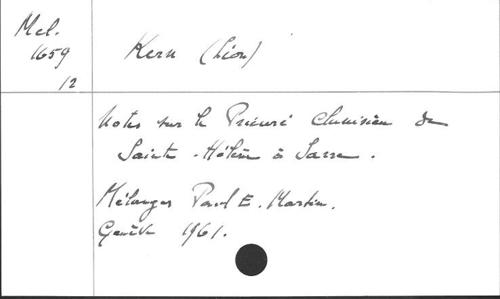 Mel.
1659
12
Kern (Léon)
Notes sur le Prieuré Clunisien de
Sainte-Hélène à
Mélanges Paul E. Martin.
Genève 1961.